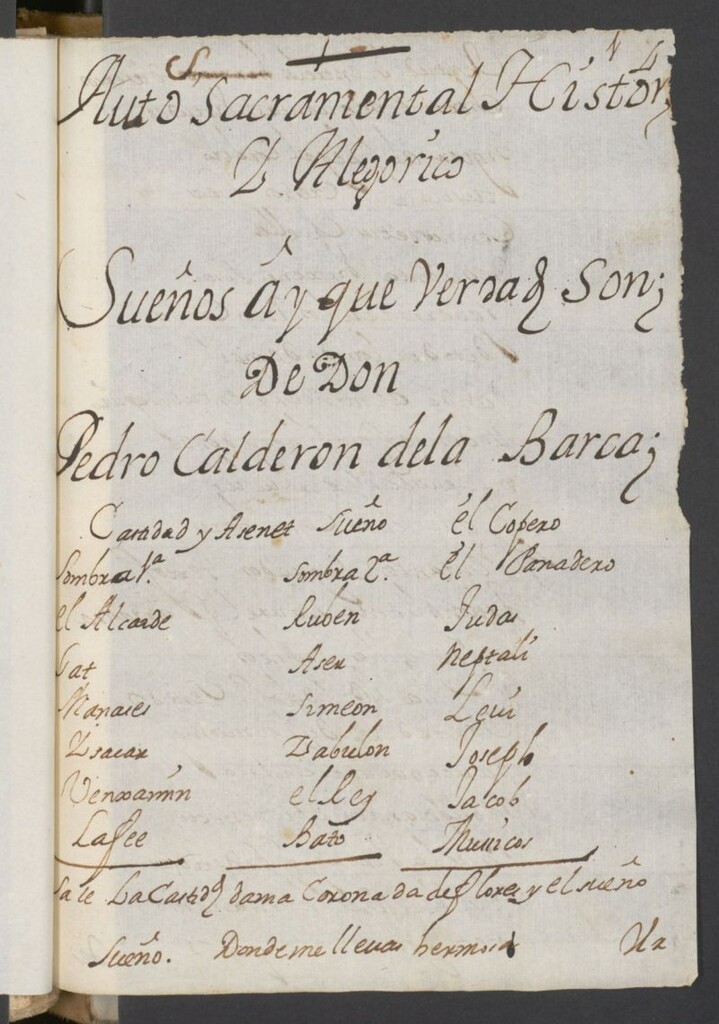 Auto Sacramental Histor
Y Alegorico
Sueños ay que Verdad Son;
De Don
Pedro Calderon dela Barca;
Castidad y Asenet Sueño él Copero
Sombra 1ª. Sombra 2ª. él Panadero
el Alcaide Ruben Judas
Gat Aser Neptali
Manases Simeon Levi
Ysacar Zabulon Joseph
Venxamin el Rey Jacob
La fee Bato Musicos
Sale La Castidd dama Coronada de flores y el sueño
Sueño. Donde me llevas hermosa